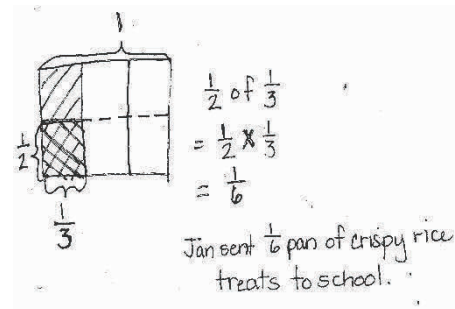 1
1/2
1/3
1/2 of 1/3
= 1/2 x 1/3
= 1/6
Jan sent 1/6 pan of crispy rice
treats to school.